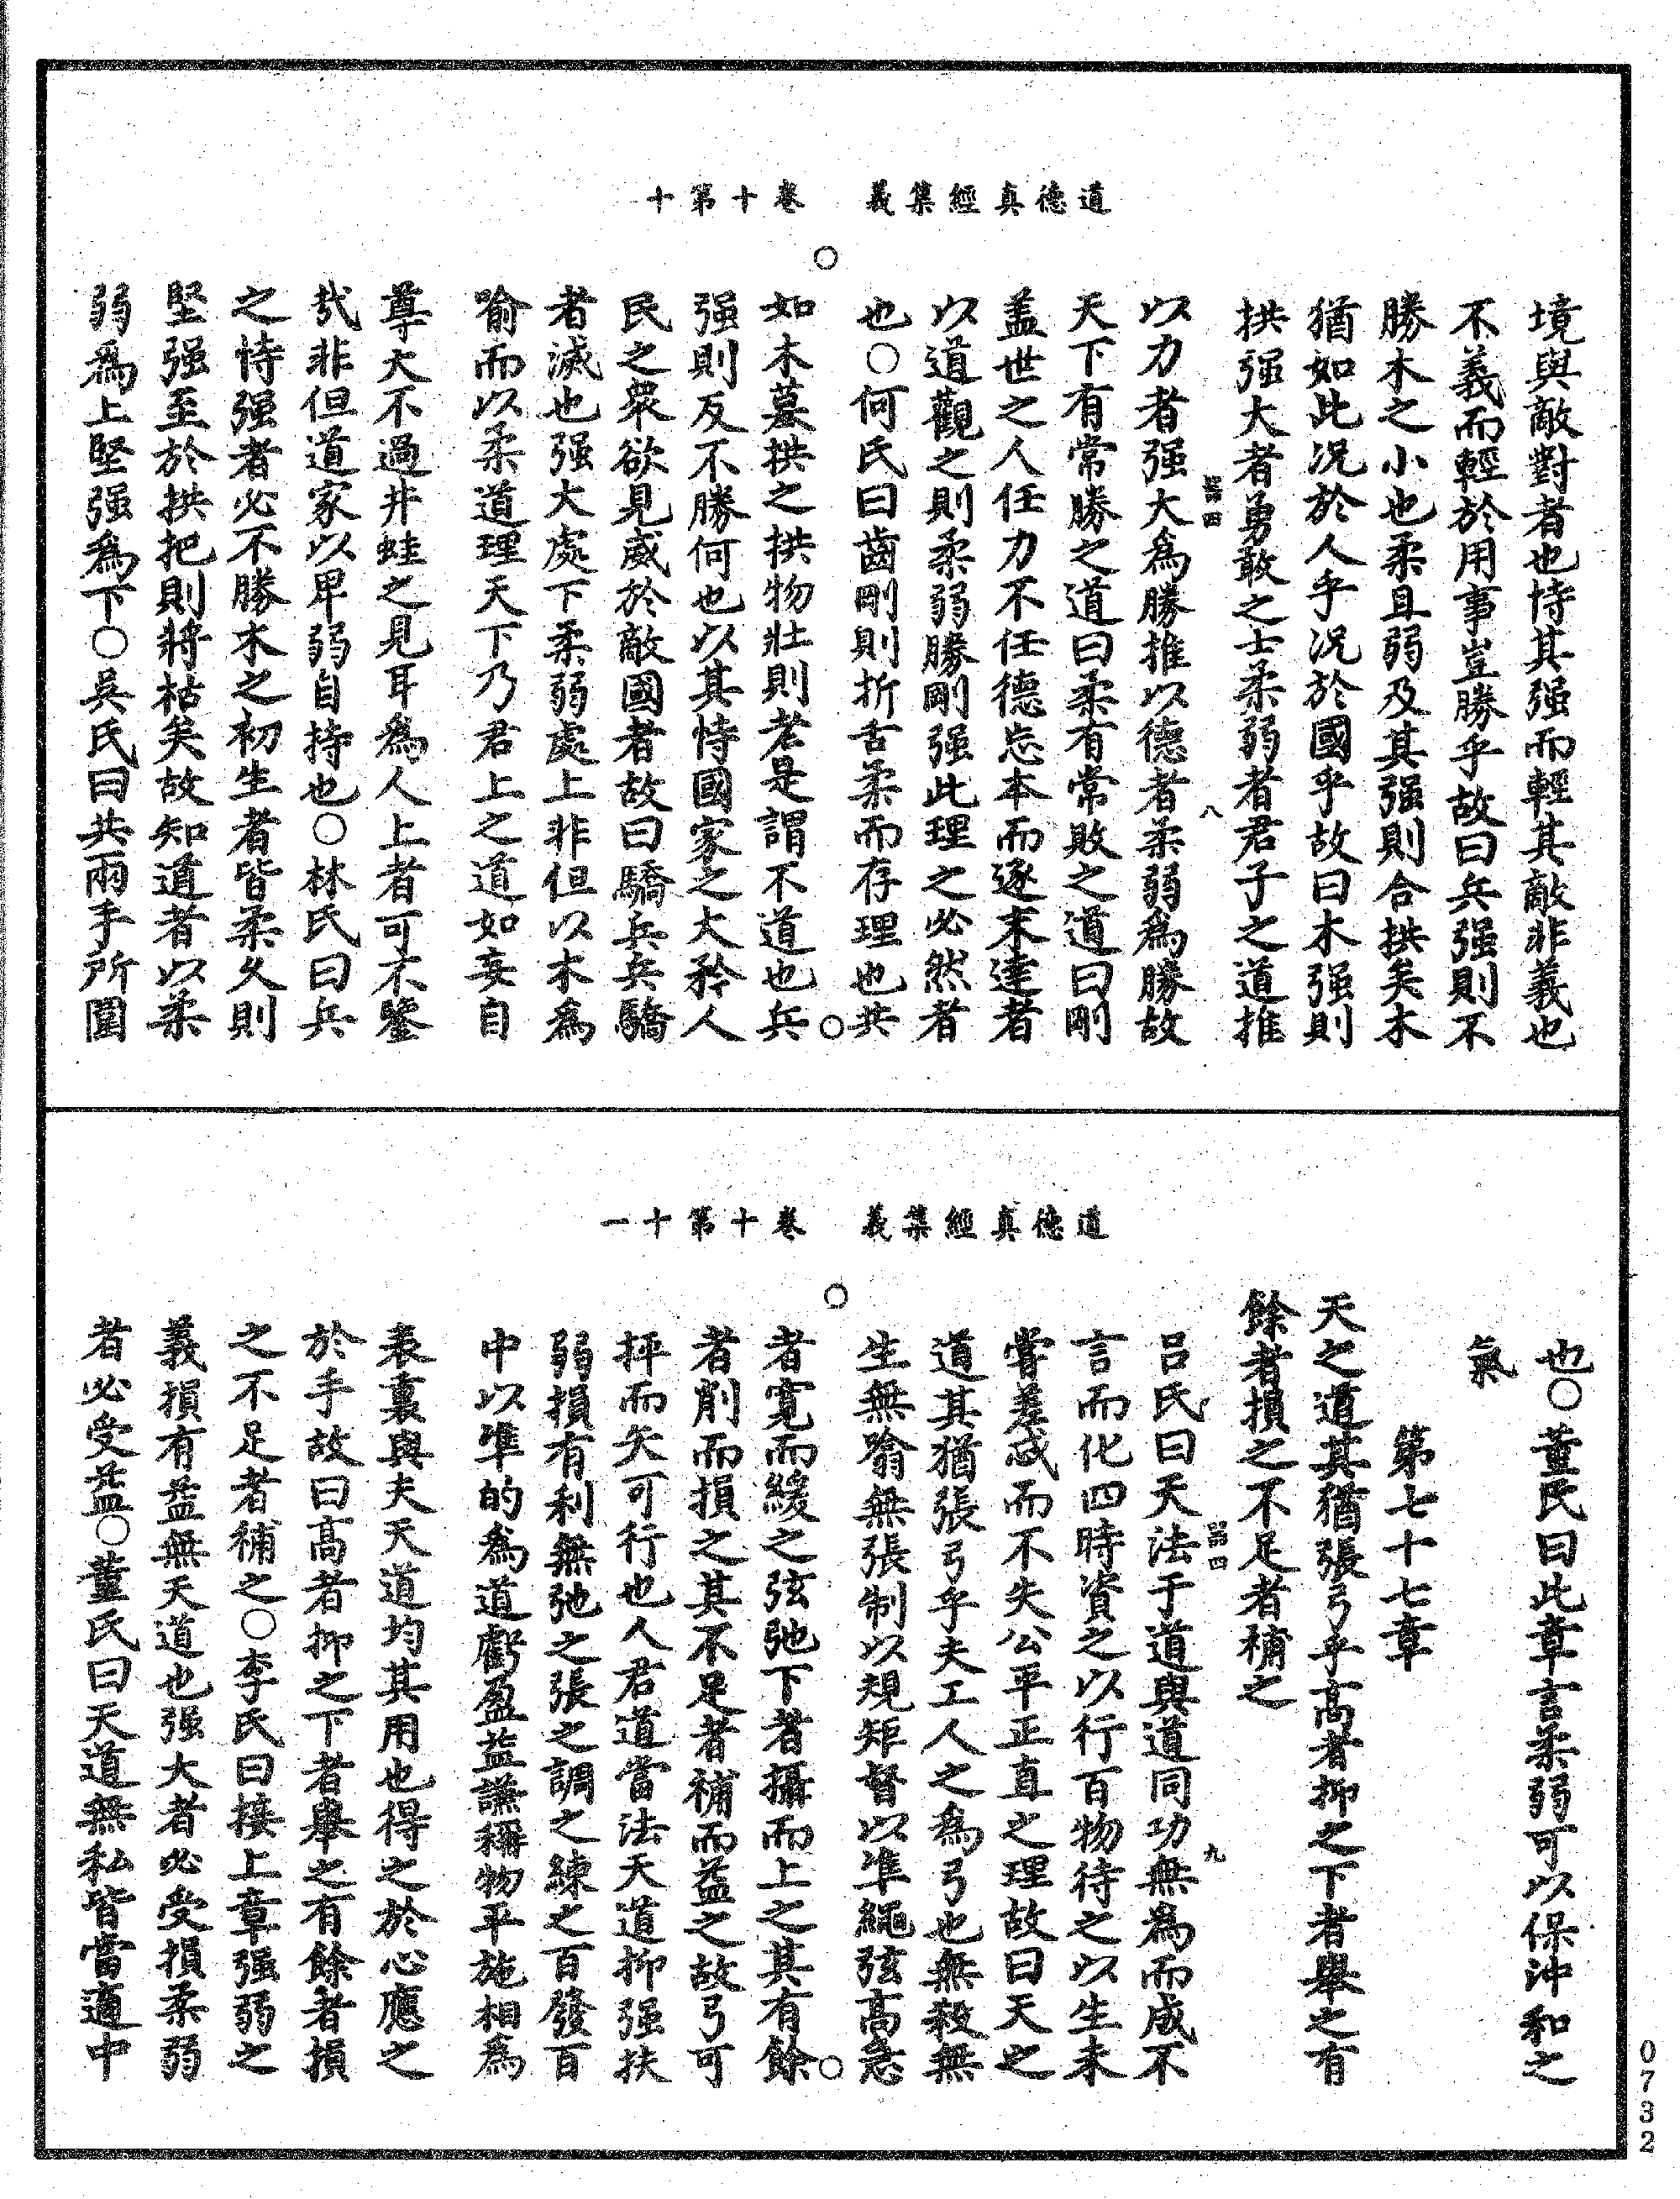 道德真經集義　卷十第十
境與敵對者也恃其强而輕其敵非義也
不義而輕於用事豈勝乎故曰兵强則不
勝木之小也柔且弱及其强則合拱矣木
猶如此况於人乎况於國乎故曰木强則
拱强大者勇敢之士柔弱者君子之道推
八
以力者强大爲勝推以德者柔弱爲勝故
天下有常勝之道曰柔有常敗之道曰剛
盖世之人任力不任德忘本而逐末達者
以道觀之則柔弱勝剛强此理之必然者
也○何氏曰齒剛則折舌柔而存理也共
如木墓拱之拱物壯則老是謂不道也兵
强則反不勝何也以其恃國家之大矜人
民之衆欲見威於敵國者故曰驕兵兵驕
者滅也强大處下柔弱處上非但以木爲
喻而以柔道理天下乃君上之道如妄自
尊大不過井蛙之見耳爲人上者可不鑒
㦲非但道家以卑弱自持也○林氏曰兵
之恃强者必不勝木之初生者皆柔久則
堅强至於拱把則將枯矣故知道者以柔
弱爲上堅强爲下○吳氏曰共兩手所圍
道德真經集義　卷十第十一
也○董氏曰此章言柔弱可以保沖和之
氣
第七十七章
天之道其猶張弓乎高者抑之下者舉之有
餘者損之不足者補之
九
吕氏曰天法于道與道同功無爲而成不
言而化四時資之以行百物待之以生未
嘗差忒而不失公平正直之理故曰天之
道其猶張弓乎夫工人之爲弓也無殺無
生無翕無張制以規矩督以準繩弦高急
者寛而緩之弦弛下者攝而上之其有餘
者削而損之其不足者補而益之故弓可
抨而矢可行也人君道當法天道抑强扶
弱損有利無弛之張之調之練之百發百
中以準的爲道虧盈益謙稱物平施相爲
表裏與夫天道均其用也得之於心應之
於手故曰高者抑之下者舉之有餘者損
之不足者補之○李氏曰接上章强弱之
義損有益無天道也强大者必受損柔弱
者必受益○董氏曰天道無私皆當適中
0732